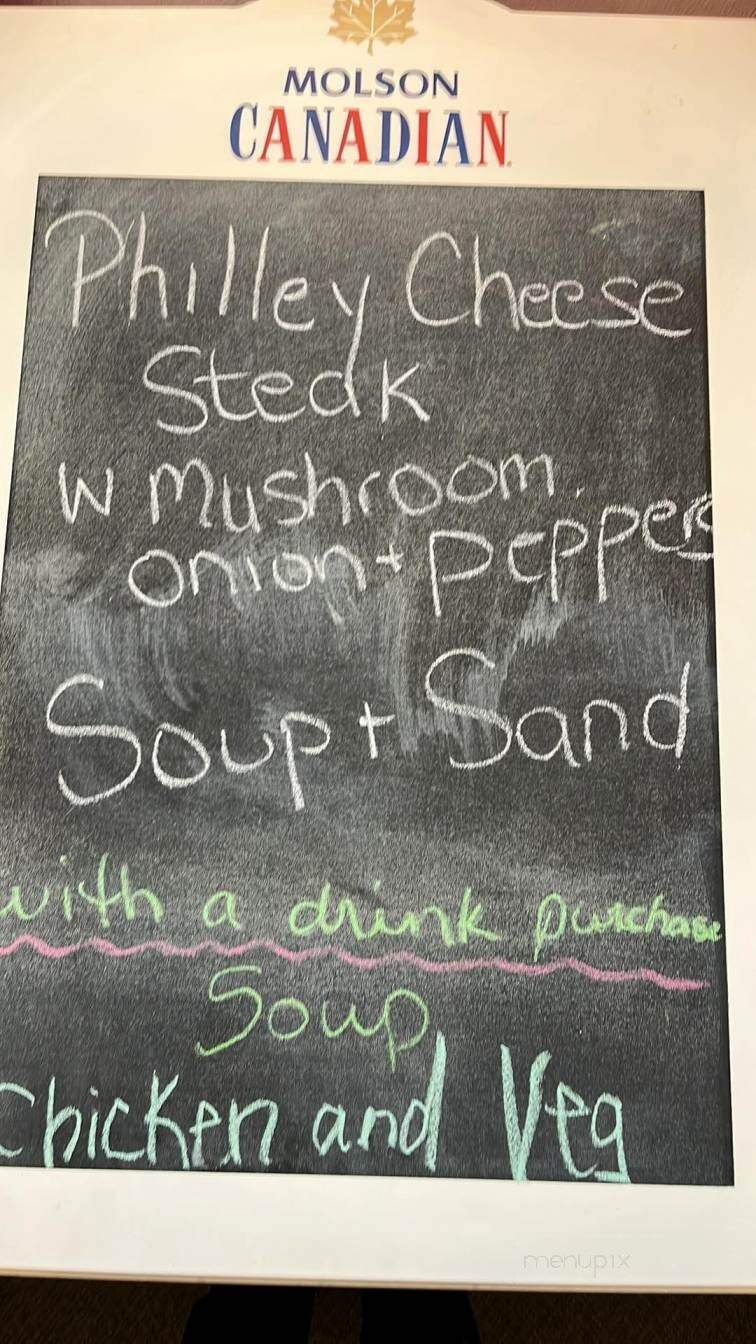 MOLSON
CANADIAN
Philley Cheese
Steak
W Mushroom.
onion + peppers
Soup + Sand
with a drink purchase
Soup
Chicken and Veg
menupix